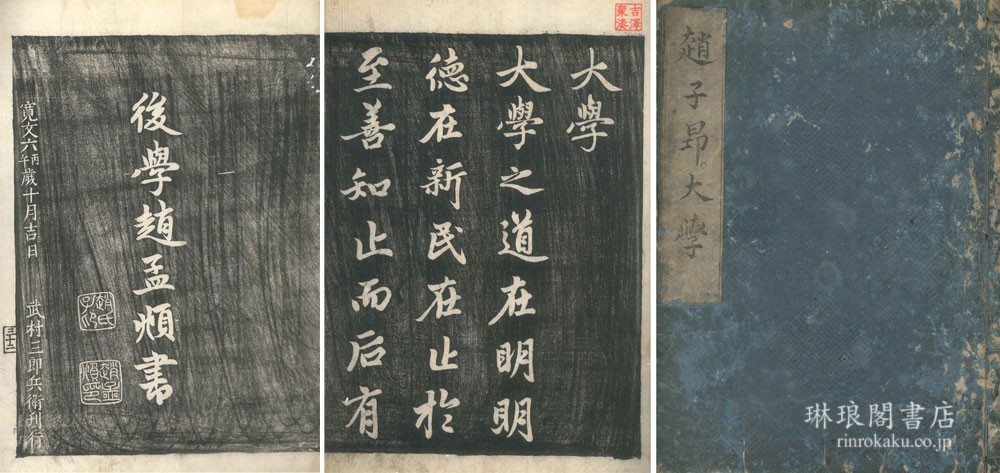 趙子昂大學
大學
大學之道在明明
德在新民在止於
至善知止而后有
後學趙孟頫書
趙氏子昂
趙孟頫印
寛文六丙午歳十月吉日
武村三郎兵衛刊行
吉澤藏
琳琅閣書店
rinrokaku.co.jp